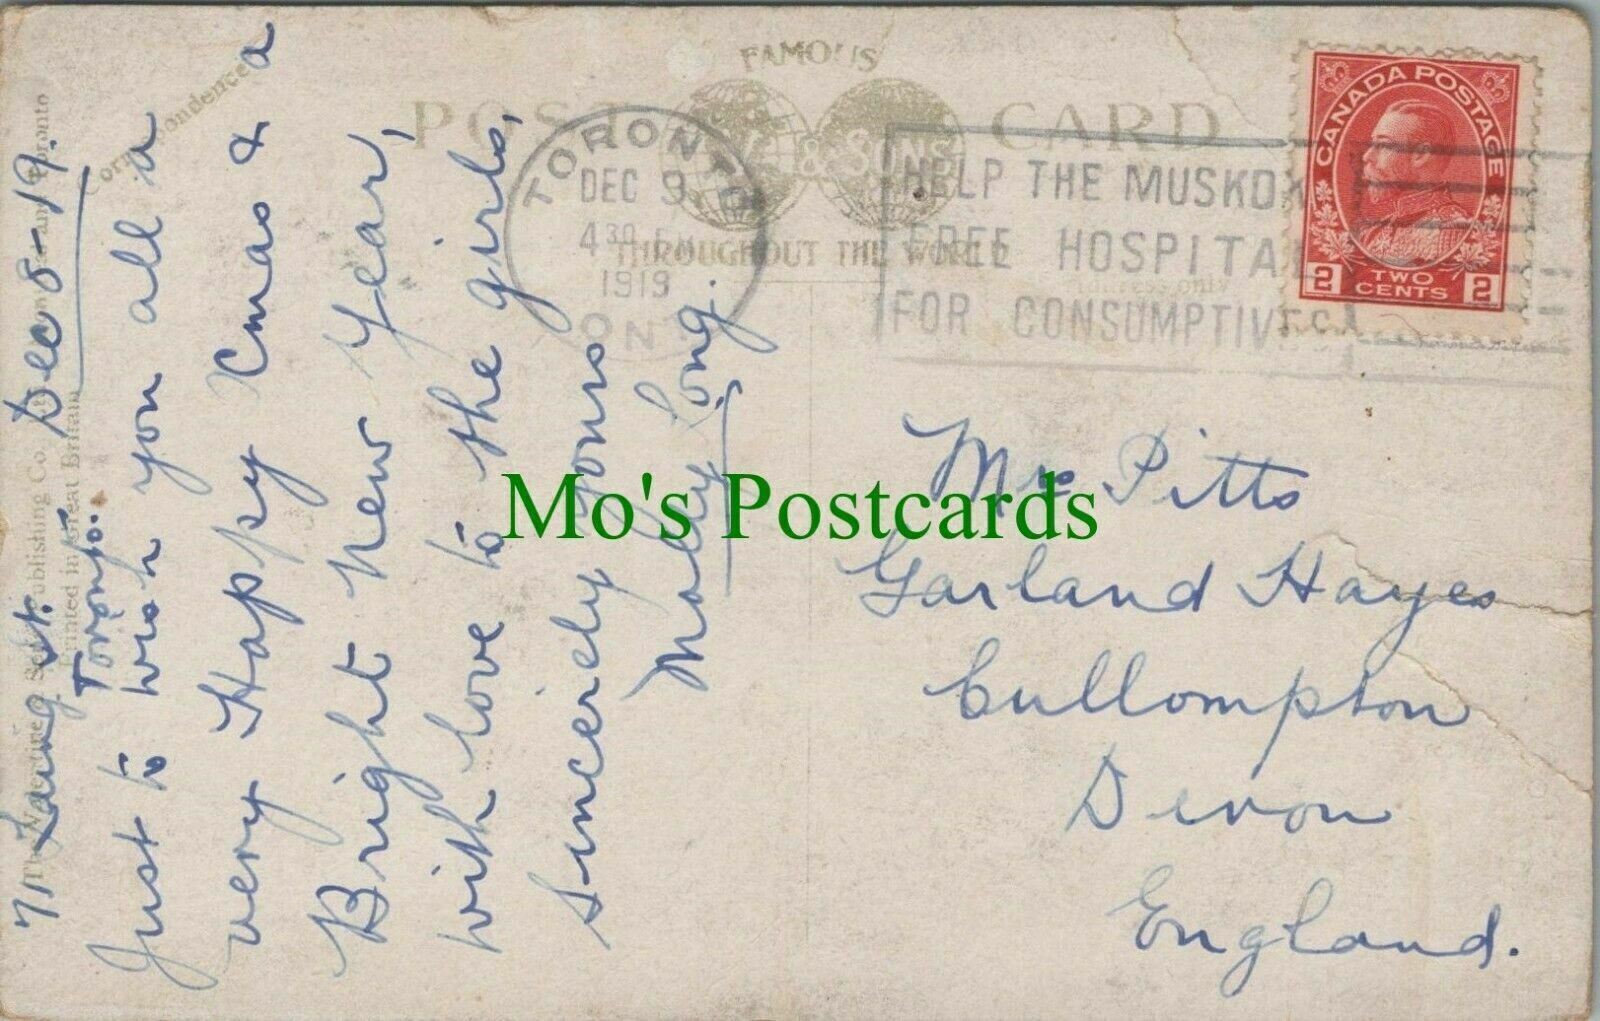 FAMOUS
POST CARD
& SONS
THROUGHOUT THE WORLD
Correspondence
Address only
TORONTO
DEC 9
4 30 PM
1919
ONT
HELP THE MUSKOK
FREE HOSPITAL
FOR CONSUMPTIVES
CANADA POSTAGE
2 TWO CENTS 2
71 Laing St. Dec 8-19.
Toronto.
Just to wish you all a
very Happy Xmas & a
Bright New Year,
with love to the girls,
Sincerely yours
Molly Long.
Mrs Pitts
Garland Hayes
Cullompton
Devon
England.
Publishing Co.
Toronto
Printed in Great Britain
Mo's Postcards